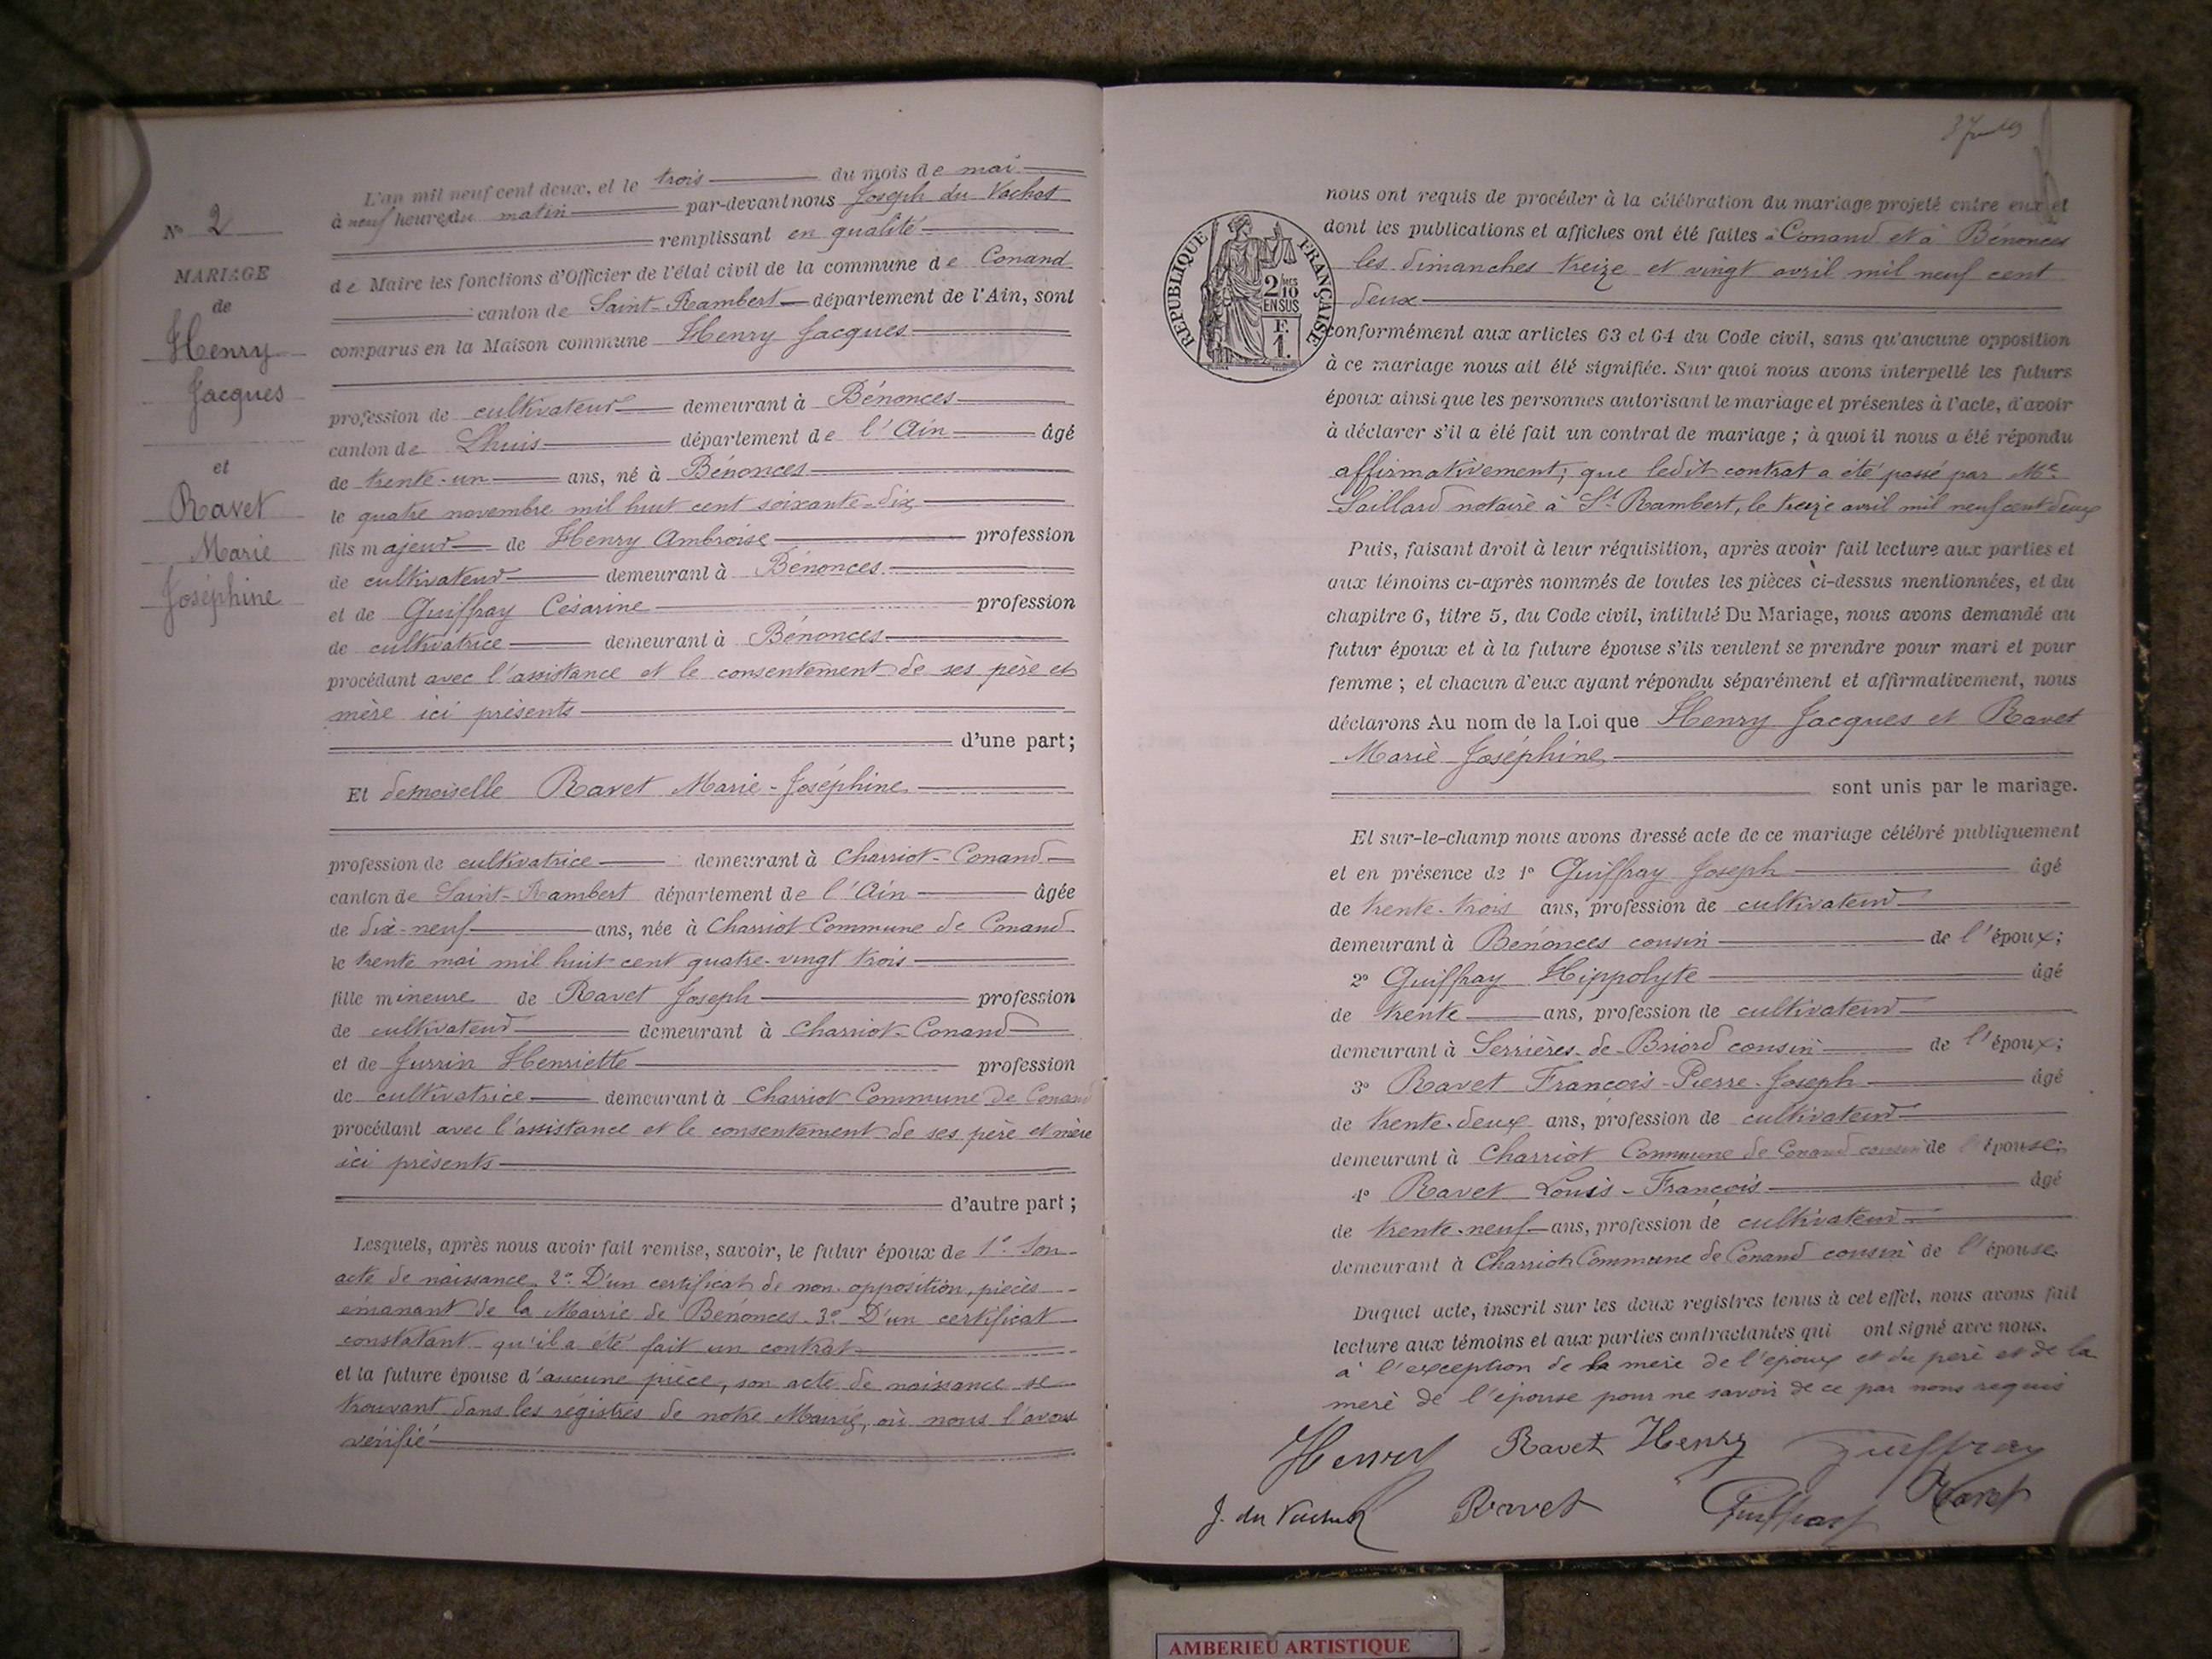 N° 2
MARIAGE
de
Henry
Jacques
et
Ravet
Marie
Joséphine
L'an mil neuf cent deux, et le trois du mois de mai
à neuf heures du matin par-devant nous Joseph du Vachat
remplissant en qualité
de Maire les fonctions d'Officier de l'état civil de la commune de Conand
canton de Saint-Rambert département de l'Ain, sont
comparus en la Maison commune Henry Jacques
profession de cultivateur demeurant à Bénonces
canton de Lhuis département de l'Ain âgé
de trente-un ans, né à Bénonces
le quatre novembre mil huit cent soixante-dix
fils majeur de Henry Ambroise profession
de cultivateur demeurant à Bénonces
et de Guiffray Césarine profession
de cultivatrice demeurant à Bénonces
procédant avec l'assistance et le consentement de ses père et
mère ici présents
d'une part;
Et demoiselle Ravet Marie-Joséphine
profession de cultivatrice demeurant à Charriot-Conand
canton de Saint-Rambert département de l'Ain âgée
de dix-neuf ans, née à Charriot Commune de Conand
le trente mai mil huit cent quatre-vingt trois
fille mineure de Ravet Joseph profession
de cultivateur demeurant à Charriot-Conand
et de Jurrin Henriette profession
de cultivatrice demeurant à Charriot Commune de Conand
procédant avec l'assistance et le consentement de ses père et mère
ici présents
d'autre part;
Lesquels, après nous avoir fait remise, savoir, le futur époux de 1° Son
acte de naissance. 2° D'un certificat de non-opposition, pièces
émanant de la Mairie de Bénonces. 3° D'un certificat
constatant qu'il a été fait un contrat
et la future épouse d'aucune pièce, son acte de naissance se
trouvant dans les régistres de notre Mairie, où nous l'avons
vérifié
RÉPUBLIQUE FRANÇAISE
2/10 MES
EN SUS
F.
1.
nous ont requis de procéder à la célébration du mariage projeté entre eux et
dont les publications et affiches ont été faites à Conand et à Bénonces
les dimanches treize et vingt avril mil neuf cent
deux
conformément aux articles 63 et 64 du Code civil, sans qu'aucune opposition
à ce mariage nous ait été signifiée. Sur quoi nous avons interpellé les futurs
époux ainsi que les personnes autorisant le mariage et présentes à l'acte, d'avoir
à déclarer s'il a été fait un contrat de mariage; à quoi il nous a été répondu
affirmativement; que ledit contrat a été passé par Me
Saillard notaire à St Rambert, le treize avril mil neuf cent deux
Puis, faisant droit à leur réquisition, après avoir fait lecture aux parties et
aux témoins ci-après nommés de toutes les pièces ci-dessus mentionnées, et du
chapitre 6, titre 5, du Code civil, intitulé Du Mariage, nous avons demandé au
futur époux et à la future épouse s'ils veulent se prendre pour mari et pour
femme; et chacun d'eux ayant répondu séparément et affirmativement, nous
déclarons Au nom de la Loi que Henry Jacques et Ravet
Marie Joséphine
sont unis par le mariage.
Et sur-le-champ nous avons dressé acte de ce mariage célébré publiquement
et en présence de 1° Guiffray Joseph âgé
de trente-trois ans, profession de cultivateur
demeurant à Bénonces cousin de l'époux;
2° Guiffray Hippolyte âgé
de trente ans, profession de cultivateur
demeurant à Serrières-de-Briord cousin de l'époux;
3° Ravet François-Pierre-Joseph âgé
de trente-deux ans, profession de cultivateur
demeurant à Charriot Commune de Conand cousin de l'épouse;
4° Ravet Louis-François âgé
de trente-neuf ans, profession de cultivateur
demeurant à Charriot Commune de Conand cousin de l'épouse
Duquel acte, inscrit sur les deux registres tenus à cet effet, nous avons fait
lecture aux témoins et aux parties contractantes qui ont signé avec nous.
à l'exception de la mère de l'époux et du père et de la
mère de l'épouse pour ne savoir de ce par nous requis
Henry Ravet Henry Guiffray
J. du Vachat Ravet Guiffray Ravet
AMBERIEU ARTISTIQUE